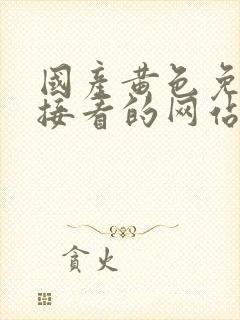 國產黄色免
接看的网佔
貪火